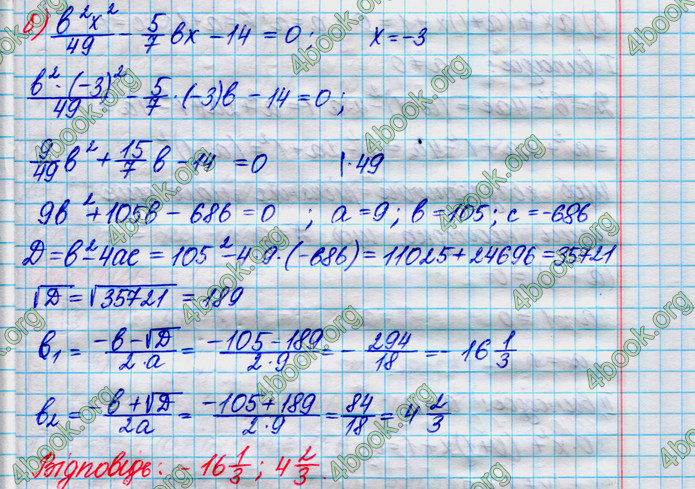 б) в²x²/49 - 5/7 вx - 14 = 0; x = -3
в²·(-3)²/49 - 5/7·(-3)в - 14 = 0;
9/49 в² + 15/7 в - 14 = 0 |·49
9в² + 105в - 686 = 0; a = 9; в = 105; c = -686
Д = в² - 4ac = 105² - 4·9·(-686) = 11025 + 24696 = 35721
√Д = √35721 = 189
в₁ = (-в - √Д)/(2·a) = (-105 - 189)/(2·9) = -294/18 = -16 1/3
в₂ = (-в + √Д)/(2a) = (-105 + 189)/(2·9) = 84/18 = 4 2/3
Відповідь: -16 1/3; 4 2/3.
4book.org